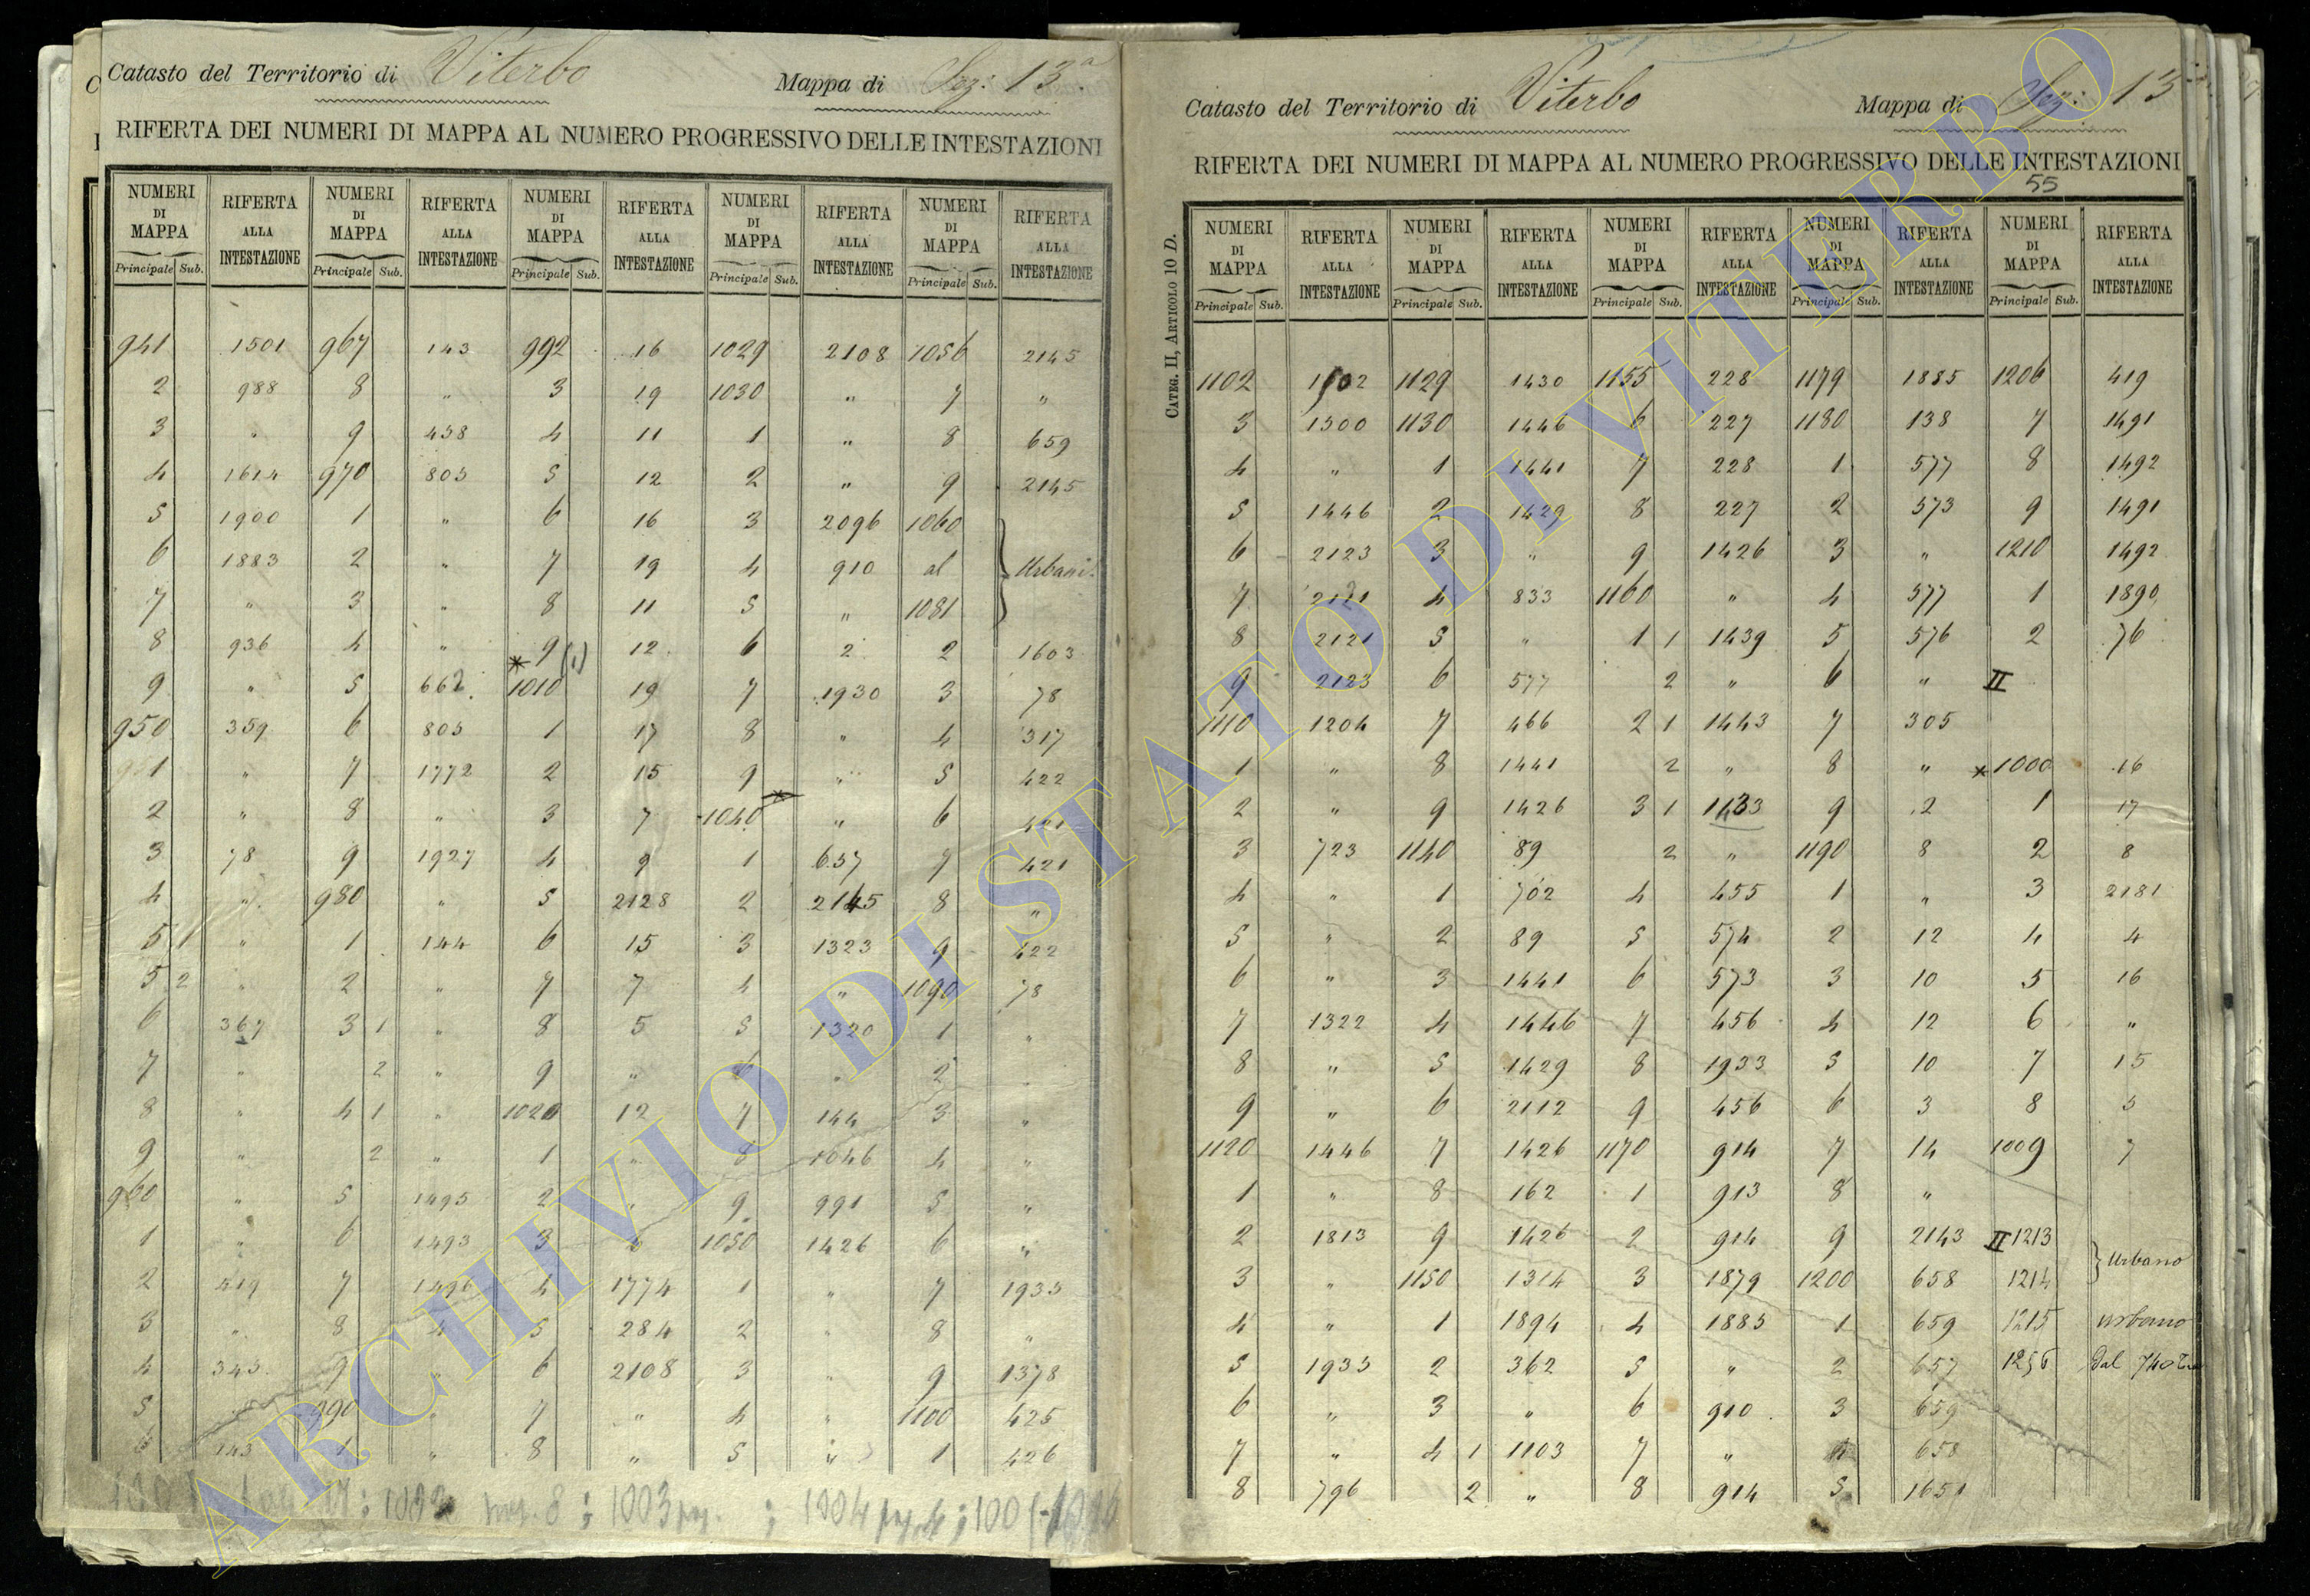 Catasto del Territorio di Viterbo Mappa di Sez: 13ª
RIFERTA DEI NUMERI DI MAPPA AL NUMERO PROGRESSIVO DELLE INTESTAZIONI
NUMERI DI MAPPA RIFERTA ALLA INTESTAZIONE NUMERI DI MAPPA RIFERTA ALLA INTESTAZIONE NUMERI DI MAPPA RIFERTA ALLA INTESTAZIONE NUMERI DI MAPPA RIFERTA ALLA INTESTAZIONE NUMERI DI MAPPA RIFERTA ALLA INTESTAZIONE
Principale Sub. Principale Sub. Principale Sub. Principale Sub. Principale Sub.
941 1501 967 143 992 16 1029 2108 1056 2145
2 988 8 " 3 19 1030 " 7 "
3 " 9 458 4 11 1 " 8 659
4 1614 970 805 5 12 2 " 9 2145
5 1900 1 " 6 16 3 2096 1060
6 1883 2 " 7 19 4 910 al Urbani
7 " 3 " 8 11 5 " 1081
8 936 4 " * 9 (1) 12 6 2 2 1603
9 " 5 662 1010 19 7 1930 3 78
950 359 6 805 1 17 8 " 4 317
1 " 7 1772 2 15 9 " 5 422
2 " 8 " 3 7 1040 * " 6
3 78 9 1927 4 9 1 657 7 421
4 " 980 " 5 2128 2 2145 8 "
5 1 " 1 144 6 15 3 1323 9 422
5 2 " 2 " 7 7 4 " 1090 78
6 367 3 1 " 8 5 5 1320 1 "
7 " 2 " 9 " 6 " 2 "
8 " 4 1 " 1020 12 7 144 3 "
9 " 2 " 1 " 8 1046 4 "
960 " 5 1495 2 " 9 991 5 "
1 " 6 1493 3 1050 1426 6 "
2 419 7 1496 4 1774 1 " 7 1935
3 " 8 4 5 284 2 " 8 "
4 345 9 " 6 2108 3 " 9 1378
5 " 990 " 7 " 4 " 1100 425
6 143 1 " 8 " 5 " 1 426
Catasto del Territorio di Viterbo Mappa di Sez: 13
RIFERTA DEI NUMERI DI MAPPA AL NUMERO PROGRESSIVO DELLE INTESTAZIONI
55
NUMERI DI MAPPA RIFERTA ALLA INTESTAZIONE NUMERI DI MAPPA RIFERTA ALLA INTESTAZIONE NUMERI DI MAPPA RIFERTA ALLA INTESTAZIONE NUMERI DI MAPPA RIFERTA ALLA INTESTAZIONE NUMERI DI MAPPA RIFERTA ALLA INTESTAZIONE
Principale Sub. Principale Sub. Principale Sub. Principale Sub. Principale Sub.
CATEG. II, ARTICOLO 10 D.
1102 1502 1129 1430 1155 228 1179 1885 1206 419
3 1500 1130 1446 6 227 1180 138 7 1491
4 " 1 1441 7 228 1 577 8 1492
5 1446 2 1429 8 227 2 573 9 1491
6 2123 3 " 9 1426 3 " 1210 1492
7 2121 4 833 1160 " 4 577 1 1890
8 2121 5 " 1 1 1439 5 576 2 76
9 2123 6 577 2 " 6 " II
1110 1204 7 466 2 1 1443 7 305
1 " 8 1441 2 " 8 " * 1000 16
2 " 9 1426 3 1 1433 9 2 1 17
3 723 1140 89 2 " 1190 8 2 8
4 " 1 702 4 455 1 " 3 2181
5 " 2 89 5 574 2 12 4 4
6 " 3 1441 6 573 3 10 5 16
7 1322 4 1446 7 456 4 12 6 "
8 " 5 1429 8 1933 5 10 7 15
9 " 6 2112 9 456 6 3 8 5
1120 1446 7 1426 1170 914 7 14 1009 7
1 " 8 162 1 913 8 "
2 1813 9 1426 2 914 9 2143 II 1213
3 " 1150 1314 3 1879 1200 658 1214 Urbano
4 " 1 1894 4 1885 1 659 1215 urbano
5 1935 2 362 5 " 2 657 1256 dal 740
6 " 3 " 6 910 3 659
7 " 4 1 1103 7 " 4 658
8 796 2 " 8 914 5 1651
ARCHIVIO DI STATO DI VITERBO